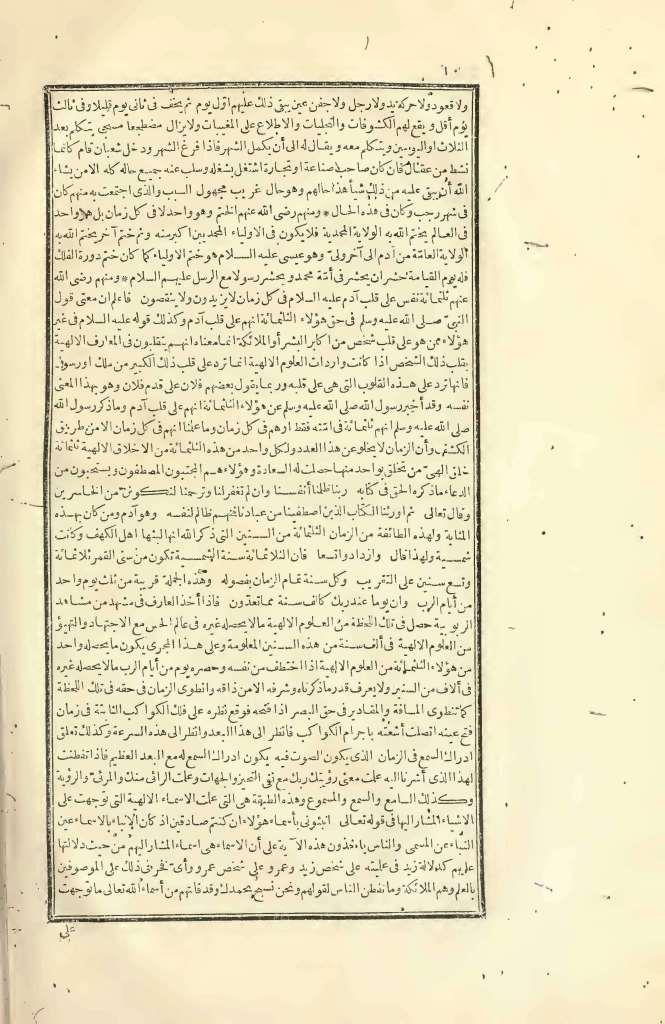 ١٠
ولا قعود ولا حركة يد ولا رجل ولا جفن عين يبقى ذلك عليهم أول يوم ثم يخف في ثاني يوم قليلا وفي ثالث
يوم أقل ويقع لهم الكشوفات والتجليات والاطلاع على المغيبات ولا يزال مضطجعا مسجى يتكلم بعد
الثلاث أو اليومين ويتكلم معه ويقال له الى أن يكمل الشهر فاذا فرغ الشهر ودخل شعبان قام كأنما
نشط من عقال فان كان صاحب صناعة أو تجارة اشتغل بشغله وسلب عنه جميع حاله كله الا من يشاء
الله أن يبقى عليه من ذلك شيأ هذا حالهم وهو حال غريب مجهول السبب والذى اجتمعت به منهم كان
في شهر رجب وكان في هذه الحال * ومنهم رضى الله عنهم الختم وهو واحد لا في كل زمان بل هو واحد
في العالم يختم الله به الولاية المحمدية فلا يكون في الاولياء المحمديين اكبر منه وثم ختم آخر يختم الله به
الولاية العامة من آدم الى آخر ولىّ وهو عيسى عليه السلام هو ختم الاولياء كما كان ختم دورة الفلك
فله يوم القيامة حشران يحشر في أمّة محمد ويحشر رسولا مع الرسل عليهم السلام * ومنهم رضى الله
عنهم ثلثمائة نفس على قلب آدم عليه السلام في كل زمان لا يزيدون ولا ينقصون فاعلم ان معنى قول
النبىّ صلى الله عليه وسلم في حق هؤلاء الثلثمائة انهم على قلب آدم وكذلك قوله عليه السلام في غير
هؤلاء ممن هو على قلب شخص من اكابر البشر أو الملائكة انما معناه انهم يتقلبون في المعارف الالهية
بقلب ذلك الشخص اذا كانت واردات العلوم الالهية انما ترد على قلب ذلك الكبير من ملك أو رسول
فانها ترد على هذه القلوب التى هى على قلبه وربما يقول بعضهم فلان على قدم فلان وهو بهذا المعنى
نفسه وقد أخبر رسول الله صلى الله عليه وسلم عن هؤلاء الثلثمائة انهم على قلب آدم وما ذكر رسول الله
صلى الله عليه وسلم انهم ثلثمائة في امّته فقط أو هم في كل زمان وما علمنا انهم في كل زمان الا من طريق
الكشف وأن الزمان لا يخلو عن هذا العدد ولكل واحد من هذه الثلثمائة من الاخلاق الالهية ثلثمائة
خلق الهىّ من تخلق بواحد منها حصلت له السعادة وهؤلاء هم المجتبون المصطفون ويستحبون من
الدعاء ما ذكره الحق في كتابه ربنا ظلمنا أنفسنا وان لم تغفر لنا وترحمنا لنكونن من الخاسرين
وقال تعالى ثم أورثنا الكتاب الذين اصطفينا من عبادنا فمنهم ظالم لنفسه وهو آدم ومن كان بهذه
المثابة ولهذه الطائفة من الزمان الثلثمائة من السنين التى ذكر الله انها لبثها اهل الكهف وكانت
شمسية ولهذا قال وازدادوا تسعا فان الثلاثمائة سنة الشمسية تكون من سنى القمر ثلاثمائة
وتسع سنين على التقريب وكل سنة تمام الزمان بفصوله وهذه الجملة قريبة من ثلث يوم واحد
من أيام الرب وان يوما عند ربك كألف سنة مما تعدّون فاذا أخذ العارف في مشهد من مشاهد
الربوبية حصل في تلك اللحظة من العلوم الالهية ما لا يحصله غيره في عالم الحس مع الاجتهاد والتهيؤ
من العلوم الالهية في ألف سنة من هذه السنين المعلومة وعلى هذا المجرى يكون ما يحصله واحد
من هؤلاء الثلثمائة من العلوم الالهية اذا اختطف من نفسه وحصره يوم من أيام الرب ما لا يحصله غيره
في آلاف من السنين ولا يعرف قدر ما ذكرناه وشرفه الا من ذاقه وانطوى الزمان في حقه في تلك اللحظة
كما تنطوى المسافة والمقادير في حق البصر اذا فتحه فوقع نظره على فلك الكواكب الثابتة في زمان
فتح عينه اتصلت أشعته باجرام الكواكب فانظر الى هذا البعد وانظر الى هذه السرعة وكذلك تعلق
ادراك السمع في الزمان الذى يكون الصوت فيه يكون ادراك السمع له مع البعد العظيم فاذا تفطنت
لهذا الذى أشرنا اليه علمت معنى رؤيتك ربك مع نفى التحيز والجهات وعلمت الرائى منك والمرئىّ والرؤية
وكذلك السامع والسمع والمسموع وهذه الطبقة هى التى علمت الاسماء الالهية التى توجهت على
الاشياء المشار اليها في قوله تعالى انبئونى بأسماء هؤلاء ان كنتم صادقين اذ كان الانباء بالاسماء عين
الثناء عن المسمى والناس يأخذون هذه الآية على أن الاسماء هى اسماء المشار اليهم من حيث دلالتها
عليهم كدلالة زيد في علميته على شخص زيد وعمرو على شخص عمرو وأىّ فخر في ذلك على الموصوفين
بالعلم وهم الملائكة وما تفطن الناس لقولهم ونحن نسبح بحمدك وقد فاتهم من أسماء الله تعالى ما توجهت
على